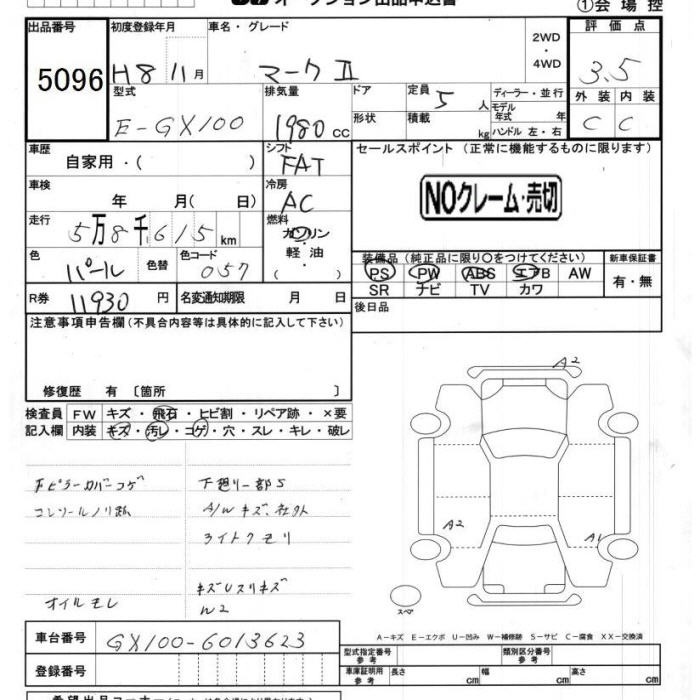 オークション出品申込書
①会場控
出品番号
5096
初度登録年月
H8 11月
車名・グレード
マークⅡ
2WD
・
4WD
評価点
3.5
型式
E-GX100
排気量
1980 cc
ドア
形状
定員 5 人
積載 kg
ディーラー・並行
モデル年式 年
ハンドル 左・右
外装 内装
C C
車歴
自家用・( )
シフト
FAT
セールスポイント (正常に機能するものに限ります)
NOクレーム・売切
車検
年 月( 日)
冷房
AC
走行
5万8千615km
燃料
ガソリン
・
軽油
( )
色
パール
色替
色コード
057
装備品(純正品に限り○をつけてください)
PS PW ABS エアB AW
SR ナビ TV カワ
新車保証書
有・無
R券 11930円
名変通知期限 月 日
後日品
注意事項申告欄(不具合内容等は具体的に記入して下さい)
修復歴 有〔箇所 〕
検査員 FW キズ・飛石・ヒビ割・リペア跡・×要
記入欄 内装 キズ・汚レ・コゲ・穴・スレ・キレ・破レ
Fピラーカバーコゲ
下廻り一部S
コンソールノリ跡
A/Wキズ、社外
ライトクモリ
キズUスリキズ
オイルモレ
W2
A2
A2
A1
スペア
A-キズ E-エクボ U-凹み W-補修跡 S-サビ C-腐食 XX-交換済
車台番号 GX100-6013623
登録番号
型式指定番号
参考
類別区分番号
参考
車庫証明用
参考
長さ cm
幅 cm
高さ cm